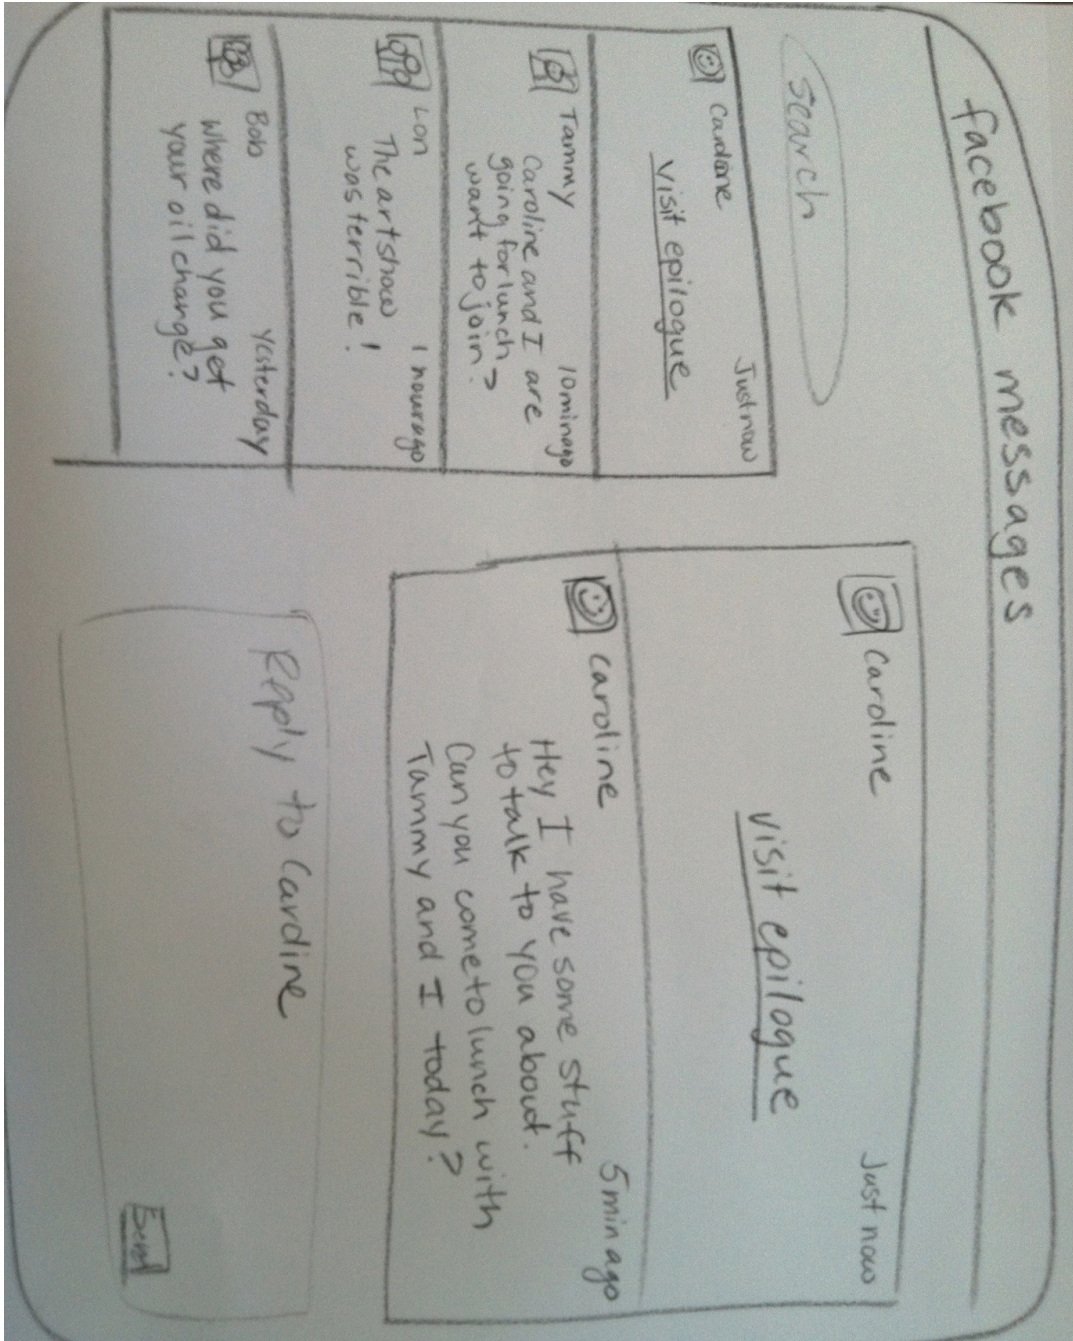 facebook messages
search
Caroline Just now
Visit epilogue
Tammy 10 min ago
Caroline and I are
going for lunch
want to join?
Lon 1 hour ago
The art show
was terrible!
Bob Yesterday
where did you get
your oil change?
Caroline Just now
visit epilogue
Caroline 5 min ago
Hey I have some stuff
to talk to you about.
Can you come to lunch with
Tammy and I today?
Reply to Caroline
Send